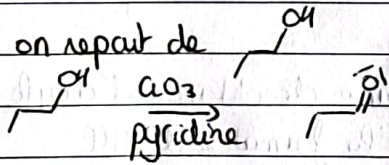 on repart de
OH
OH
CrO3
O
pyridine